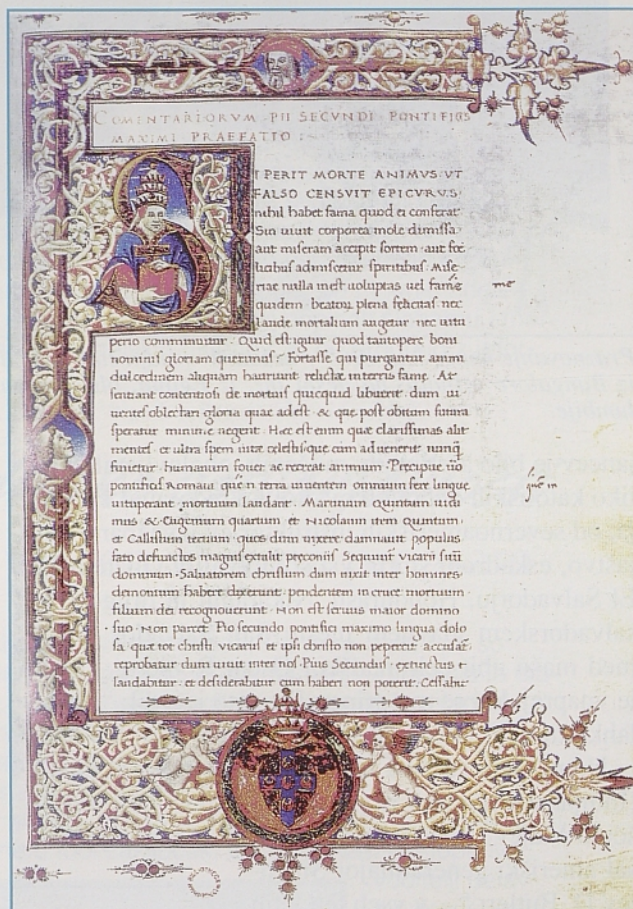 COMENTARIORVM PII SECVNDI PONTIFICIS
MAXIMI PRAEFATIO :
SI PERIT MORTE ANIMVS VT
FALSO CENSVIT EPICVRVS·
nihil habet fama quod ei conferat·
Sin uiuit corporea mole dimissa·
aut miseram accipit sortem· aut foe
licibus admiscetur spiritibus· Mise
riae nulla inest uoluptas uel famę
me
quidem· beatorum plena felicitas nec
laude mortalium augetur nec uitu
perio comminuitur· Quid est igitur quod tantopere boni
nominis gloriam querimus? Fortasse qui purgantur animi
dulcedinem aliquam hauriunt relictae in terris famę· At
sentiant contentiosi de mortuis quicquid libuerit· dum ui
uentes oblectari gloria quae adest· & que post obitum futura
speratur minime negent· Hec est enim quae clarissimas alit
mentes· et ultra spem uitae celestis que cum aduenerit nunq̄
finietur humanum fouet ac recreat animum· Precipue uo
pontificis Romani que in terra uiuentem omnium fere linguę
que in
uituperant· mortuum laudant· Martinum Quintum uidi
mus & Eugenium quartum et Nicolaum item Quintum·
et Callistum tertium· quos dum uixere damnauit populus
fato defunctos magnis extulit preconiis· Sequunt vicarii suū
dominum· Saluatorem christum dum uixit inter homines
demonium habere dixerunt· pendentem in cruce mortuum
filium dei recognouerunt· Non est seruus maior domino
suo· Non parcet Pio secundo pontifici maximo lingua dolo
sa· quae tot christi vicariis et ipsi christo non pepercit· accusat̄
reprobatur dum uiuit inter nos Pius Secundus· extinctus
laudabitur· et desiderabitur cum haberi non poterit. Cessabit